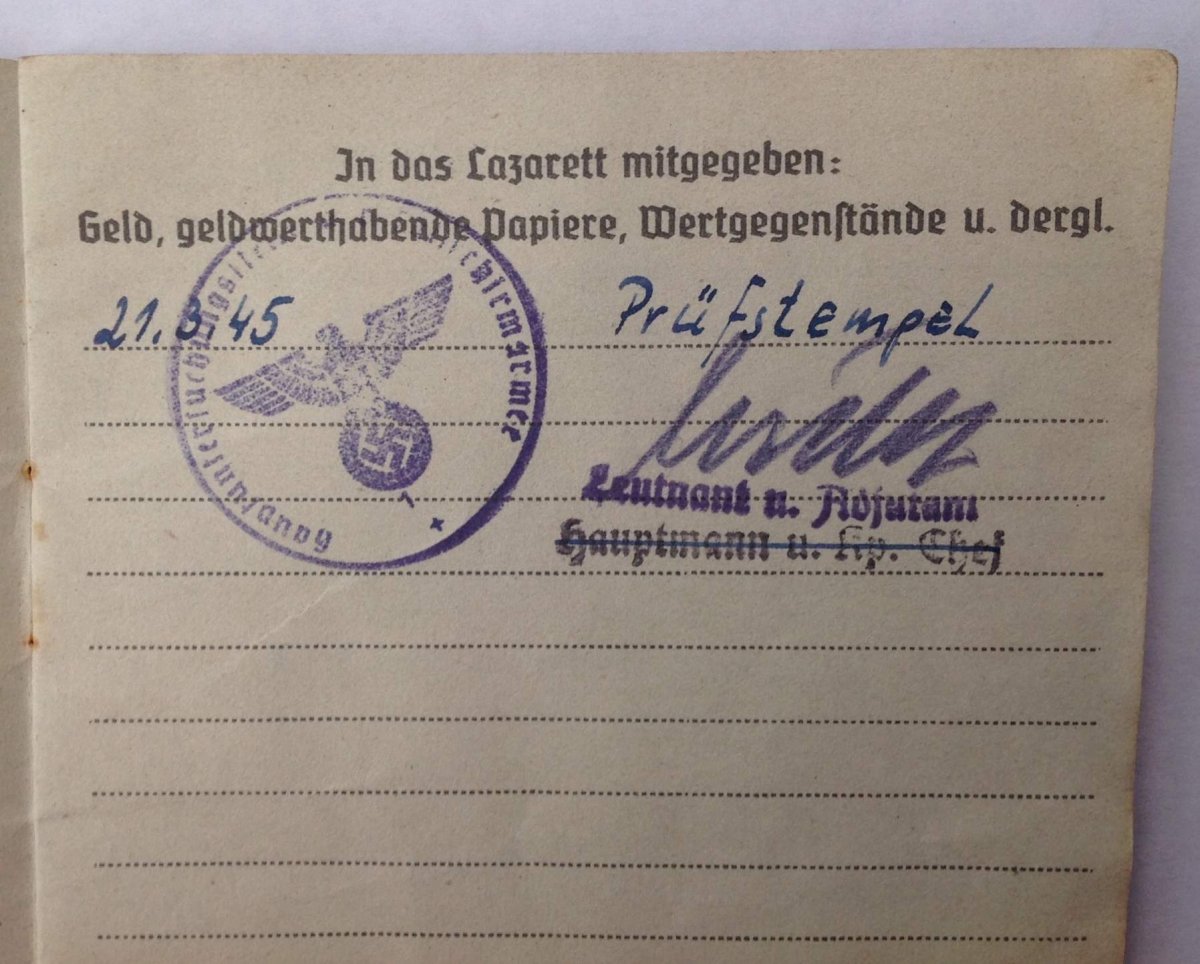 In das Lazarett mitgegeben:
Geld, geldwerthabende Papiere, Wertgegenstände u. dergl.
21.3.45 Prüfstempel
Fallschirmarmee
Leutnant u. Adjutant
Hauptmann u. Kp. Chef